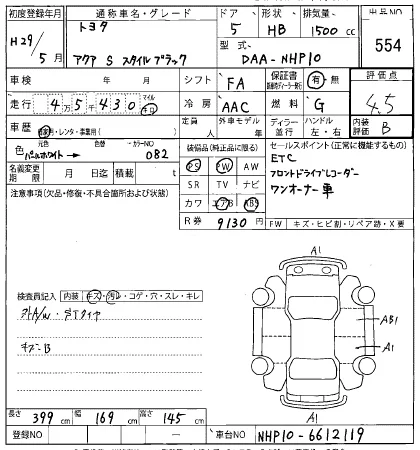 初度登録年月 通称車名・グレード ドア 形状 排気量 出品NO
H29/5月 トヨタ 5 HB 1500cc 554
アクア S スタイルブラック 型式 DAA-NHP10
車検 年 月 シフト FA 保証書 有・無 評価点
走行 4万5千430 マイル km 冷房 AAC 燃料 G 4.5
車歴 自家用・レンタ・事業用( ) 定員 人 外車モデル 年 ディーラー・並行 ハンドル 左・右 内装評価 B
色 元色 色替 カラーNO 装備品(純正品に限る) セールスポイント(正常に機能するもの)
パールホワイト → 082 PS PW AW ETC
名義変更期限 月 日迄 積載 t SR TV ナビ フロントドライブレコーダー
注意事項(欠品・修復・不具合箇所および状態) カワ エアB ABS ワンオーナー車
R券 9130円 FW キズ・ヒビ割・リペア跡・X要
A1
検査員記入 内装 キズ・汚れ・コゲ・穴・スレ・キレ
外A/W・STタイヤ
キズ-B
AB1
A1
A1
長さ 399 cm 幅 169 cm 高さ 145 cm
登録NO ー 車台NO NHP10-6612119